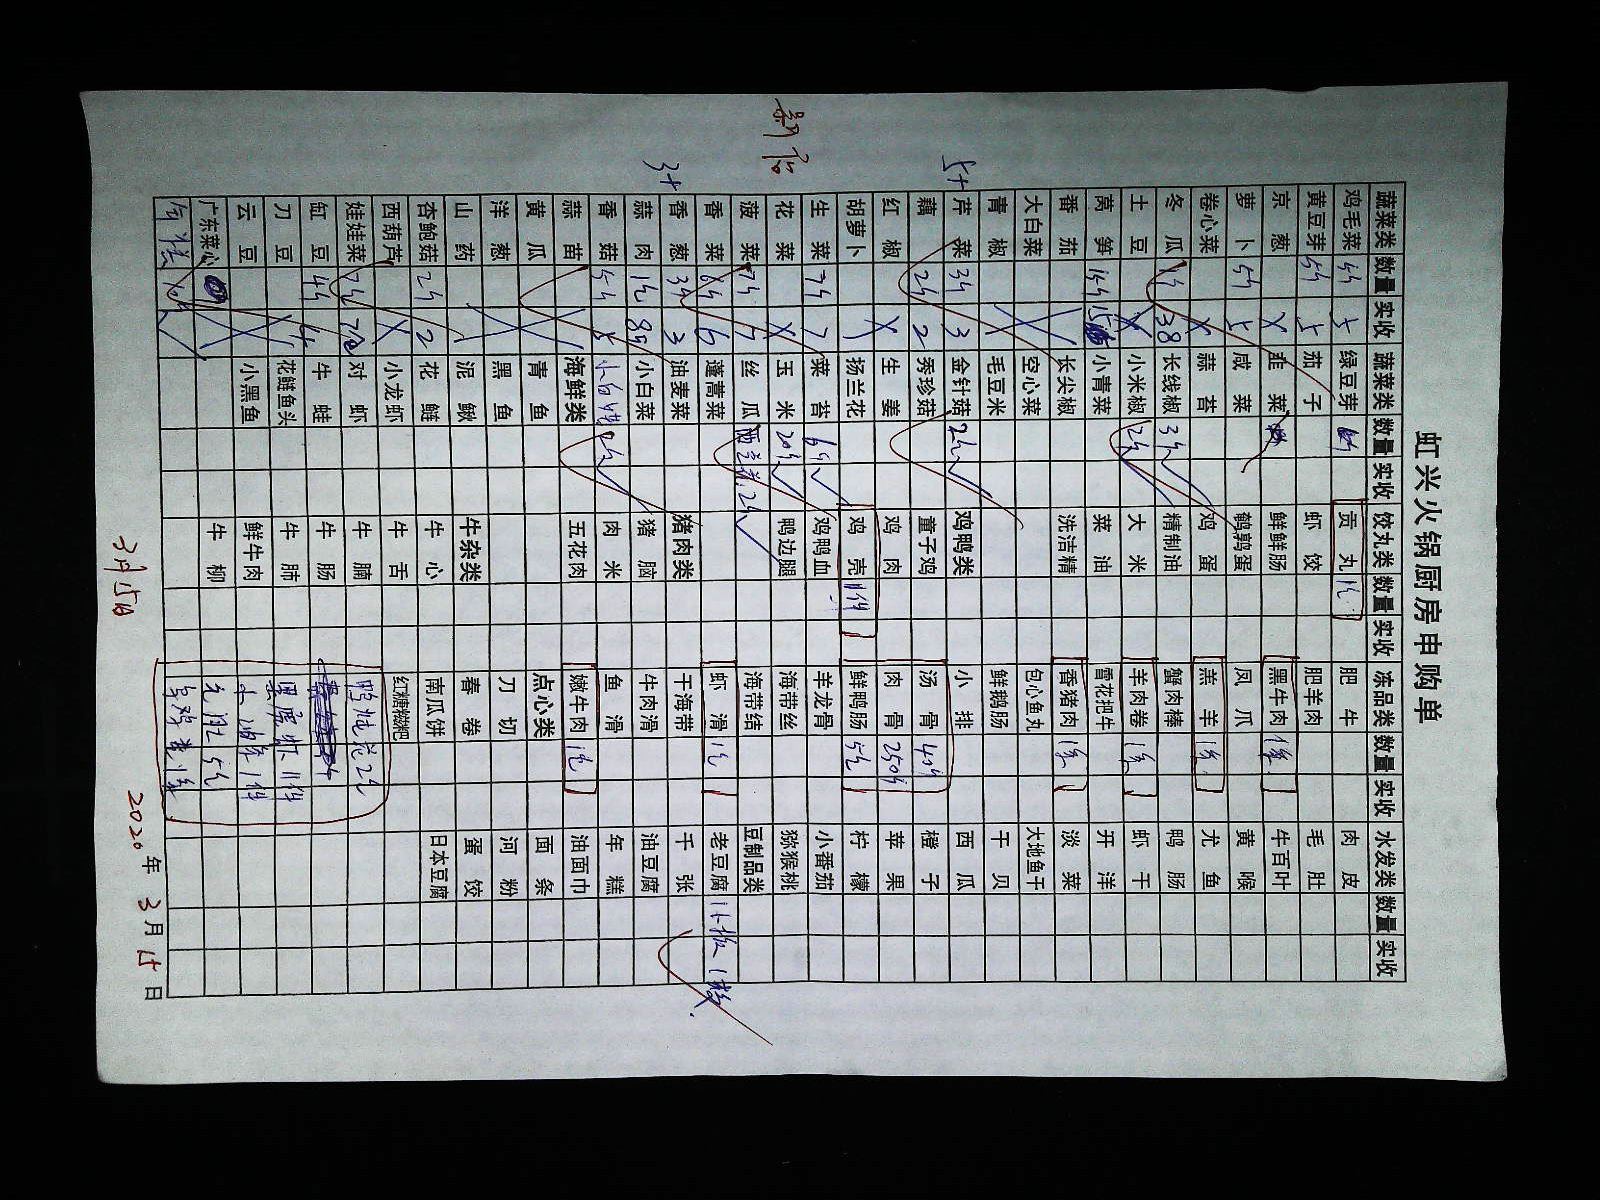 虹兴火锅厨房申购单
蔬菜类 数量 实收 蔬菜类 数量 实收 饺丸类 数量 实收 冻品类 数量 实收 水发类 数量 实收
鸡毛菜 5斤 5 绿豆芽 贡丸 1包 肥牛 肉皮
黄豆芽 5斤 5 茄子 虾饺 肥羊肉 毛肚
京葱 X 韭菜 鲜鲜肠 黑牛肉 1条 牛百叶
萝卜 5斤 5 咸菜 鹌鹑蛋 凤爪 黄喉
卷心菜 X 蒜苔 鸡蛋 羔羊 1条 尤鱼
冬瓜 38 长线椒 3斤 精制油 蟹肉棒 鸭肠
土豆 X 小米椒 2斤 大米 羊肉卷 1条 虾干
莴笋 15斤 15 小青菜 菜油 雪花把牛 开洋
番茄 长尖椒 洗洁精 香猪肉 1条 淡菜
大白菜 空心菜 包心鱼丸 大地鱼干
青椒 毛豆米 鲜鹅肠 干贝
芹菜 3斤 3 金针菇 2斤 鸡鸭类 小排 西瓜
藕 2斤 2 秀珍菇 童子鸡 汤骨 40斤 橙子
红椒 X 生姜 鸡肉 肉骨 250斤 苹果
胡萝卜 扬兰花 鸡壳 1件 鲜鸭肠 5包 柠檬
生菜 7斤 7 菜苔 6斤 鸡鸭血 羊龙骨 小番茄
花菜 X 玉米 20斤 鸭边腿 海带丝 猕猴桃
菠菜 7斤 7 丝瓜 海带结 豆制品类
香菜 6斤 6 蓬蒿菜 虾滑 1包 老豆腐 1板
香葱 3斤 3 油麦菜 猪肉类 干海带 千张
蒜肉 1包 小白菜 猪脑 牛肉滑 油豆腐
香菇 5斤 5 肉米 鱼滑 年糕
蒜苗 海鲜类 五花肉 嫩牛肉 1包 油面巾
黄瓜 青鱼 点心类 面条
洋葱 黑鱼 刀切 河粉
山药 泥鳅 牛杂类 春卷 蛋饺
杏鲍菇 2斤 2 花鲢 牛心 南瓜饼 日本豆腐
西葫芦 X 小龙虾 牛舌 红糖糍粑
娃娃菜 7包 对虾 牛腩
缸豆 4斤 4 牛蛙 牛肠
刀豆 花鲢鱼头 牛肺
云豆 小黑鱼 鲜牛肉
广东菜心 牛柳
5+
新店
3+
3月15日
2020年3月15日